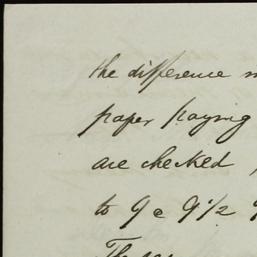 the difference
paper paying
are checked,
to 9 a 9 1/2